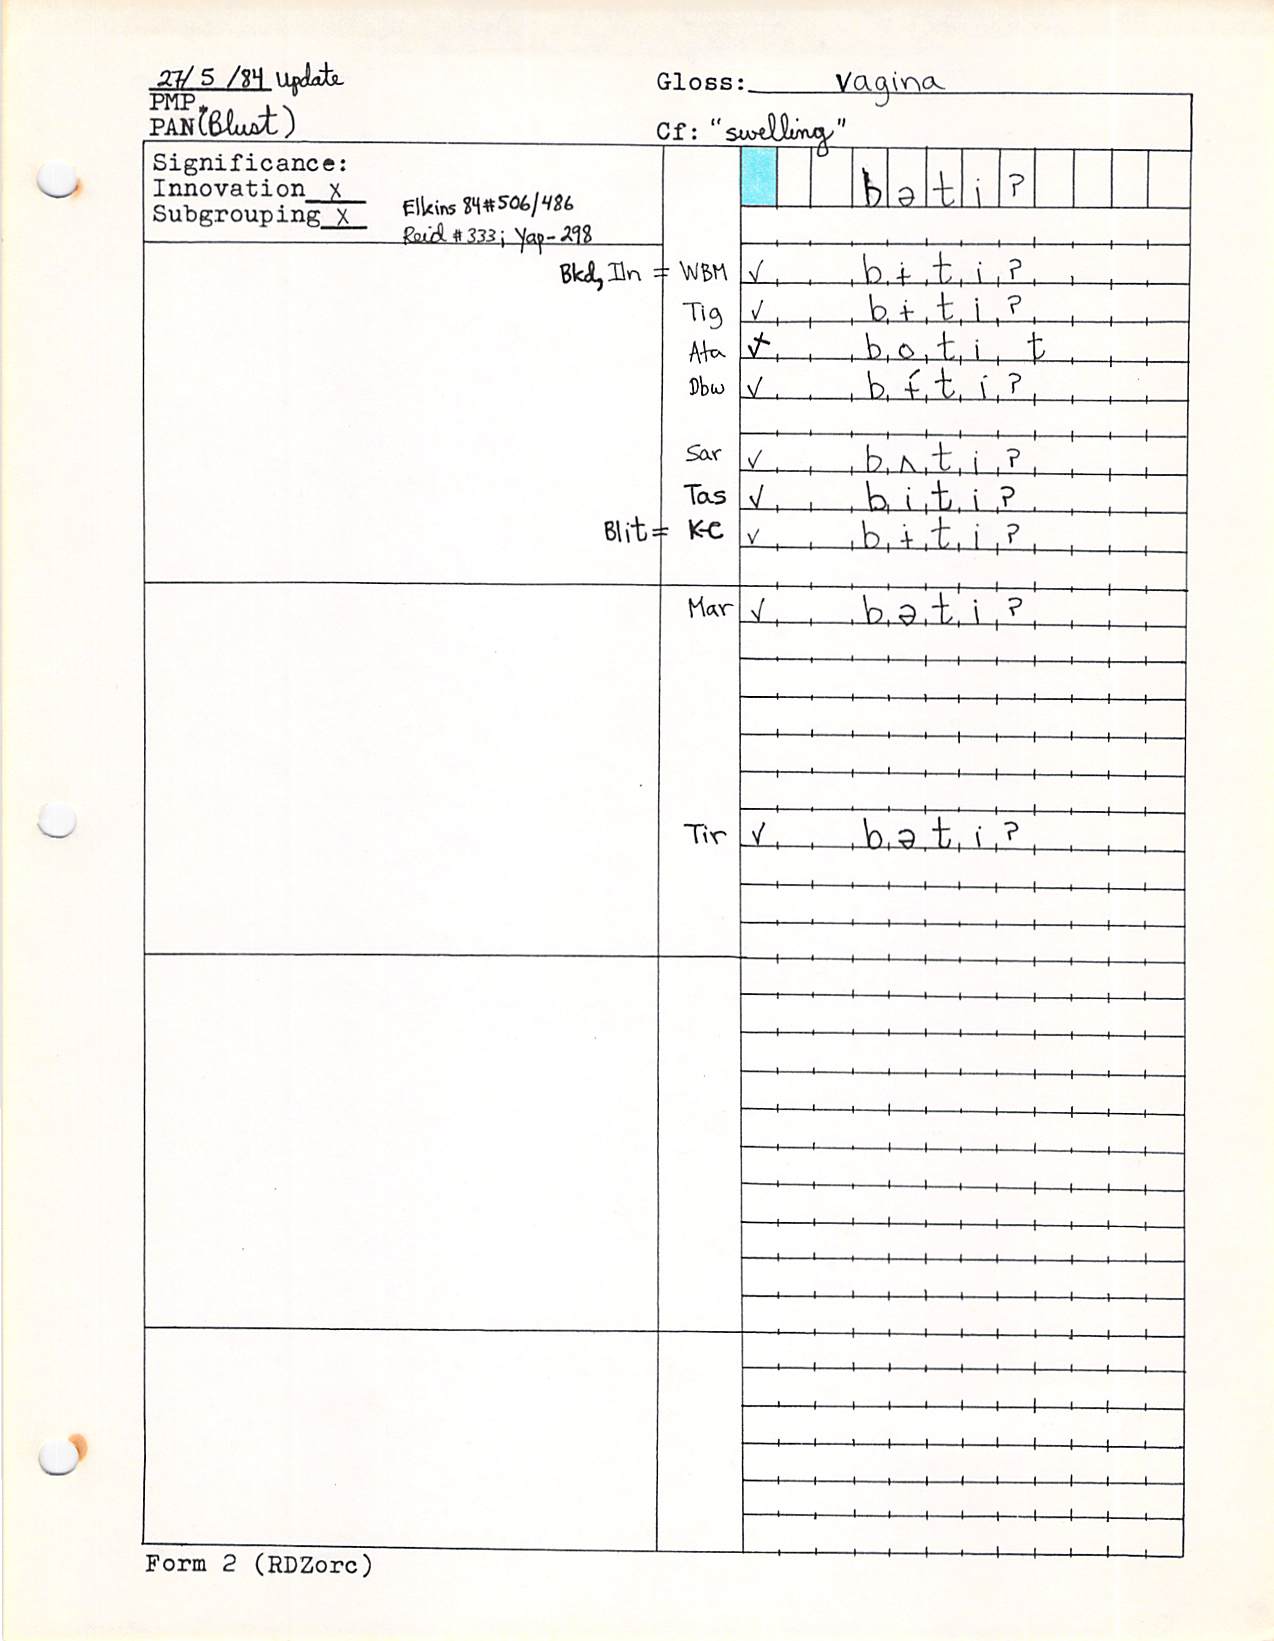 27/5/84 update
PMP
PAN (Blust)
Gloss: vagina
Cf: "swelling"
Significance:
Innovation X
Subgrouping X
Elkins 84#506/486
Reid #333; Yap-298
bəti?
Bkd, Iln = WBM ✓ bɨti?
Tig ✓ bɨti?
Ata boti t
Dbw ✓ bɨ́ti?
Sar ✓ bʌti?
Tas ✓ biti?
Blit = K-C ✓ bɨti?
Mar ✓ bəti?
Tir ✓ bəti?
Form 2 (RDZorc)